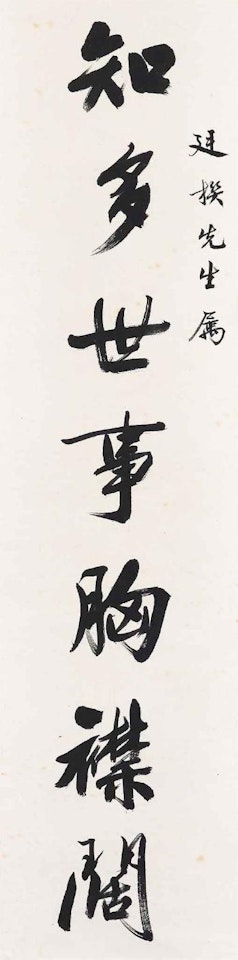 廷揆先生属
知多世事胸襟阔